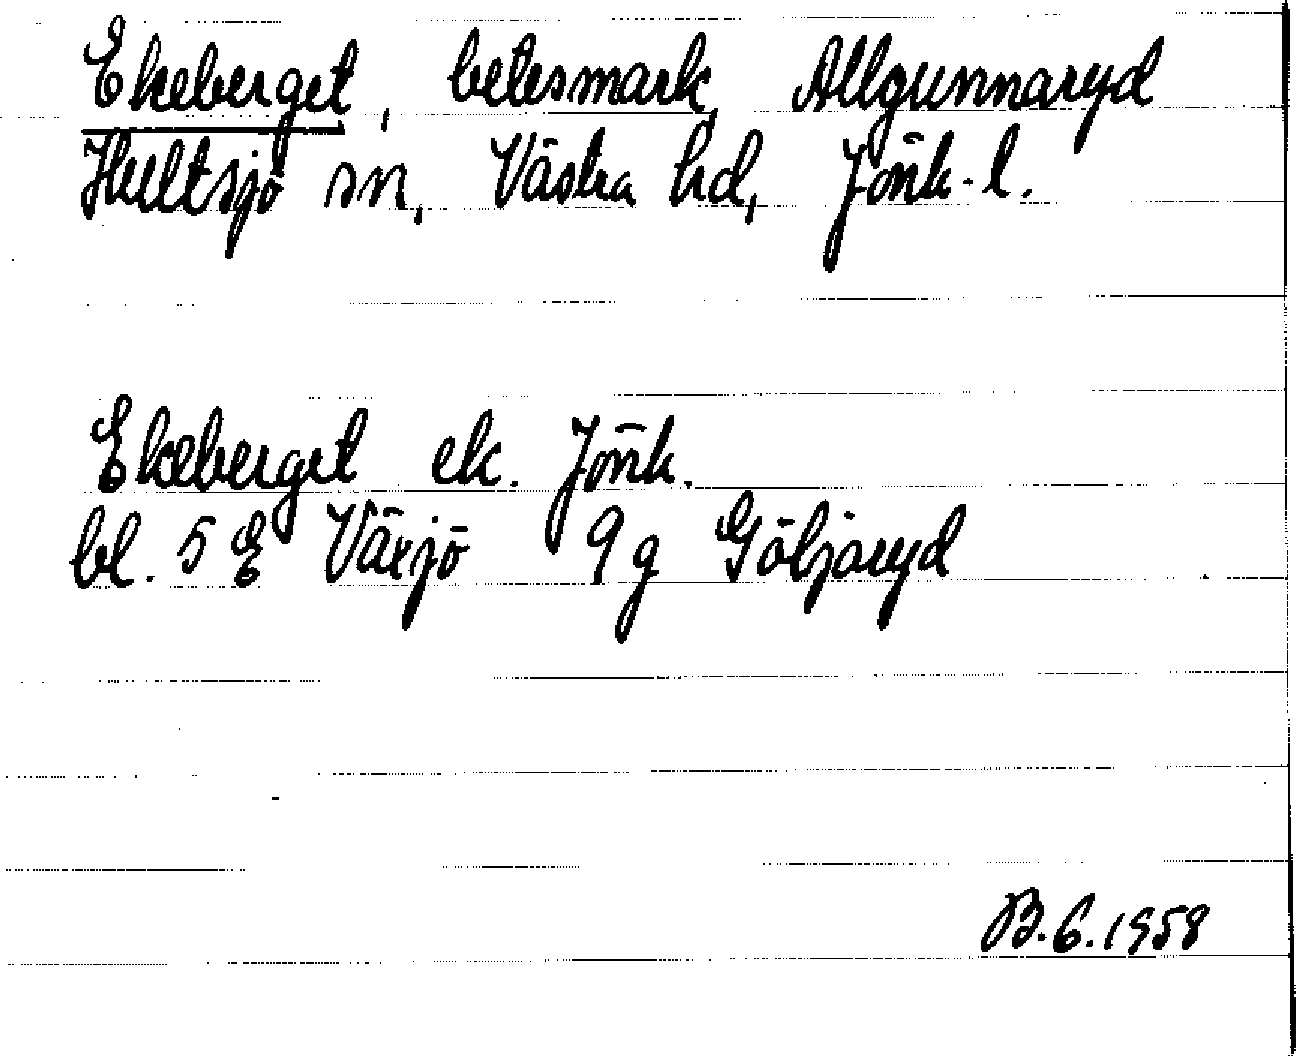 Ekeberget, betesmark Allgunnaryd
Hultsjö sn, Västra hd, Jönk. l.
Ekeberget ek. Jönk.
bl. 5 E Växjö 9g Göljaryd
B.G. 1958